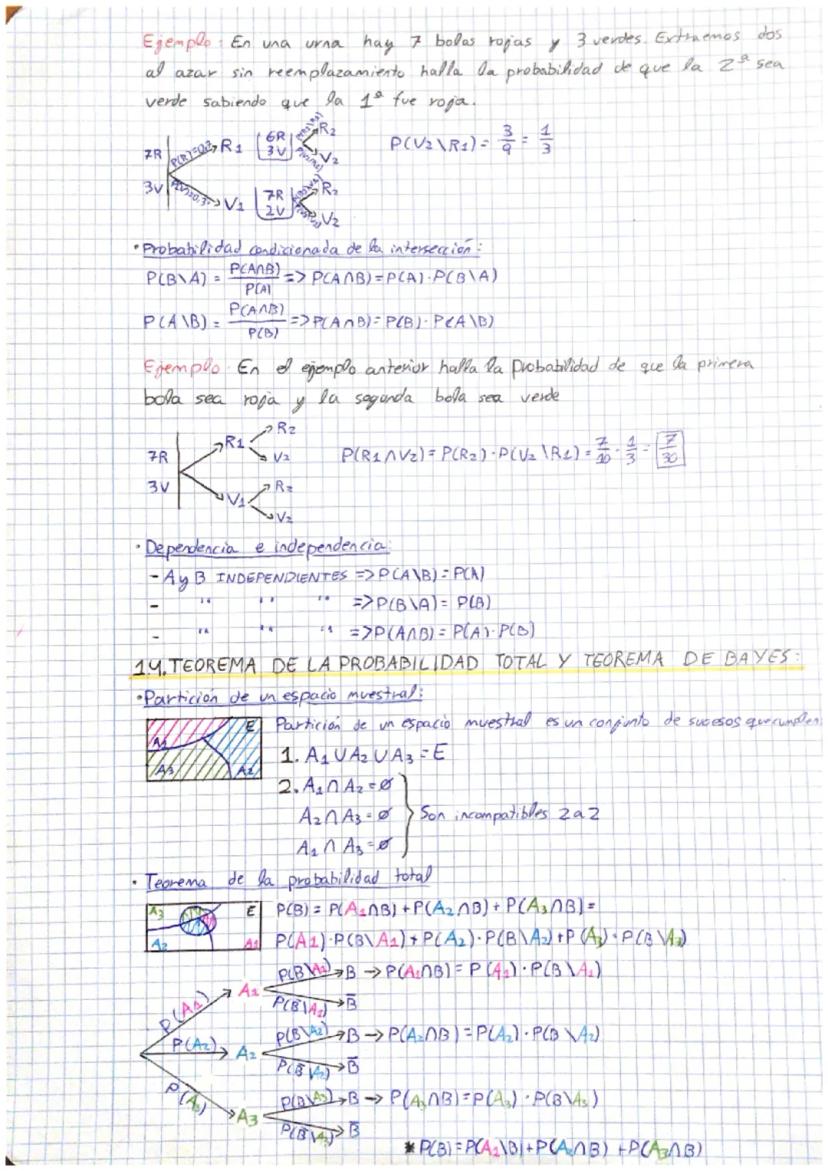 Ejemplo: En una urna hay 7 bolas rojas y 3 verdes. Extraemos dos
al azar sin reemplazamiento halla la probabilidad de que la 2ª sea
verde sabiendo que la 1ª fue roja.
7R
3V
R1
6R
3V
R2
V2
P(V2\R1) = 3/9 = 1/3
V1
7R
2V
R2
V2
• Probabilidad condicionada de la intersección:
P(B\A) = P(A∩B)/P(A) => P(A∩B)=P(A)·P(B\A)
P(A\B) = P(A∩B)/P(B) => P(A∩B)=P(B)·P(A\B)
Ejemplo En el ejemplo anterior halla la probabilidad de que la primera
bola sea roja y la segunda bola sea verde
7R
3V
R1
R2
V2
V1
R2
V2
P(R1∩V2) = P(R2)·P(V2\R1) = 7/10 · 1/3 = 7/30
• Dependencia e independencia:
- A y B INDEPENDIENTES => P(A\B) = P(A)
- " " " => P(B\A) = P(B)
- " " " => P(A∩B) = P(A)·P(B)
1.4. TEOREMA DE LA PROBABILIDAD TOTAL Y TEOREMA DE BAYES:
• Partición de un espacio muestral:
A1 E A3 A2
Partición de un espacio muestral es un conjunto de sucesos que cumplen:
1. A1 ∪ A2 ∪ A3 = E
2. A1 ∩ A2 = ∅
A2 ∩ A3 = ∅
A1 ∩ A3 = ∅
Son incompatibles 2 a 2
• Teorema de la probabilidad total
A3 E A2 A1
P(B) = P(A1∩B) + P(A2∩B) + P(A3∩B) =
P(A1)·P(B\A1) + P(A2)·P(B\A2) + P(A3)·P(B\A3)
P(A1) A1 P(B\A1) B → P(A1∩B) = P(A1)·P(B\A1)
P(B̄\A1) B̄
P(A2) A2 P(B\A2) B → P(A2∩B) = P(A2)·P(B\A2)
P(B̄\A2) B̄
P(A3) A3 P(B\A3) B → P(A3∩B) = P(A3)·P(B\A3)
P(B̄\A3) B̄
* P(B) = P(A1\B) + P(A2∩B) + P(A3∩B)